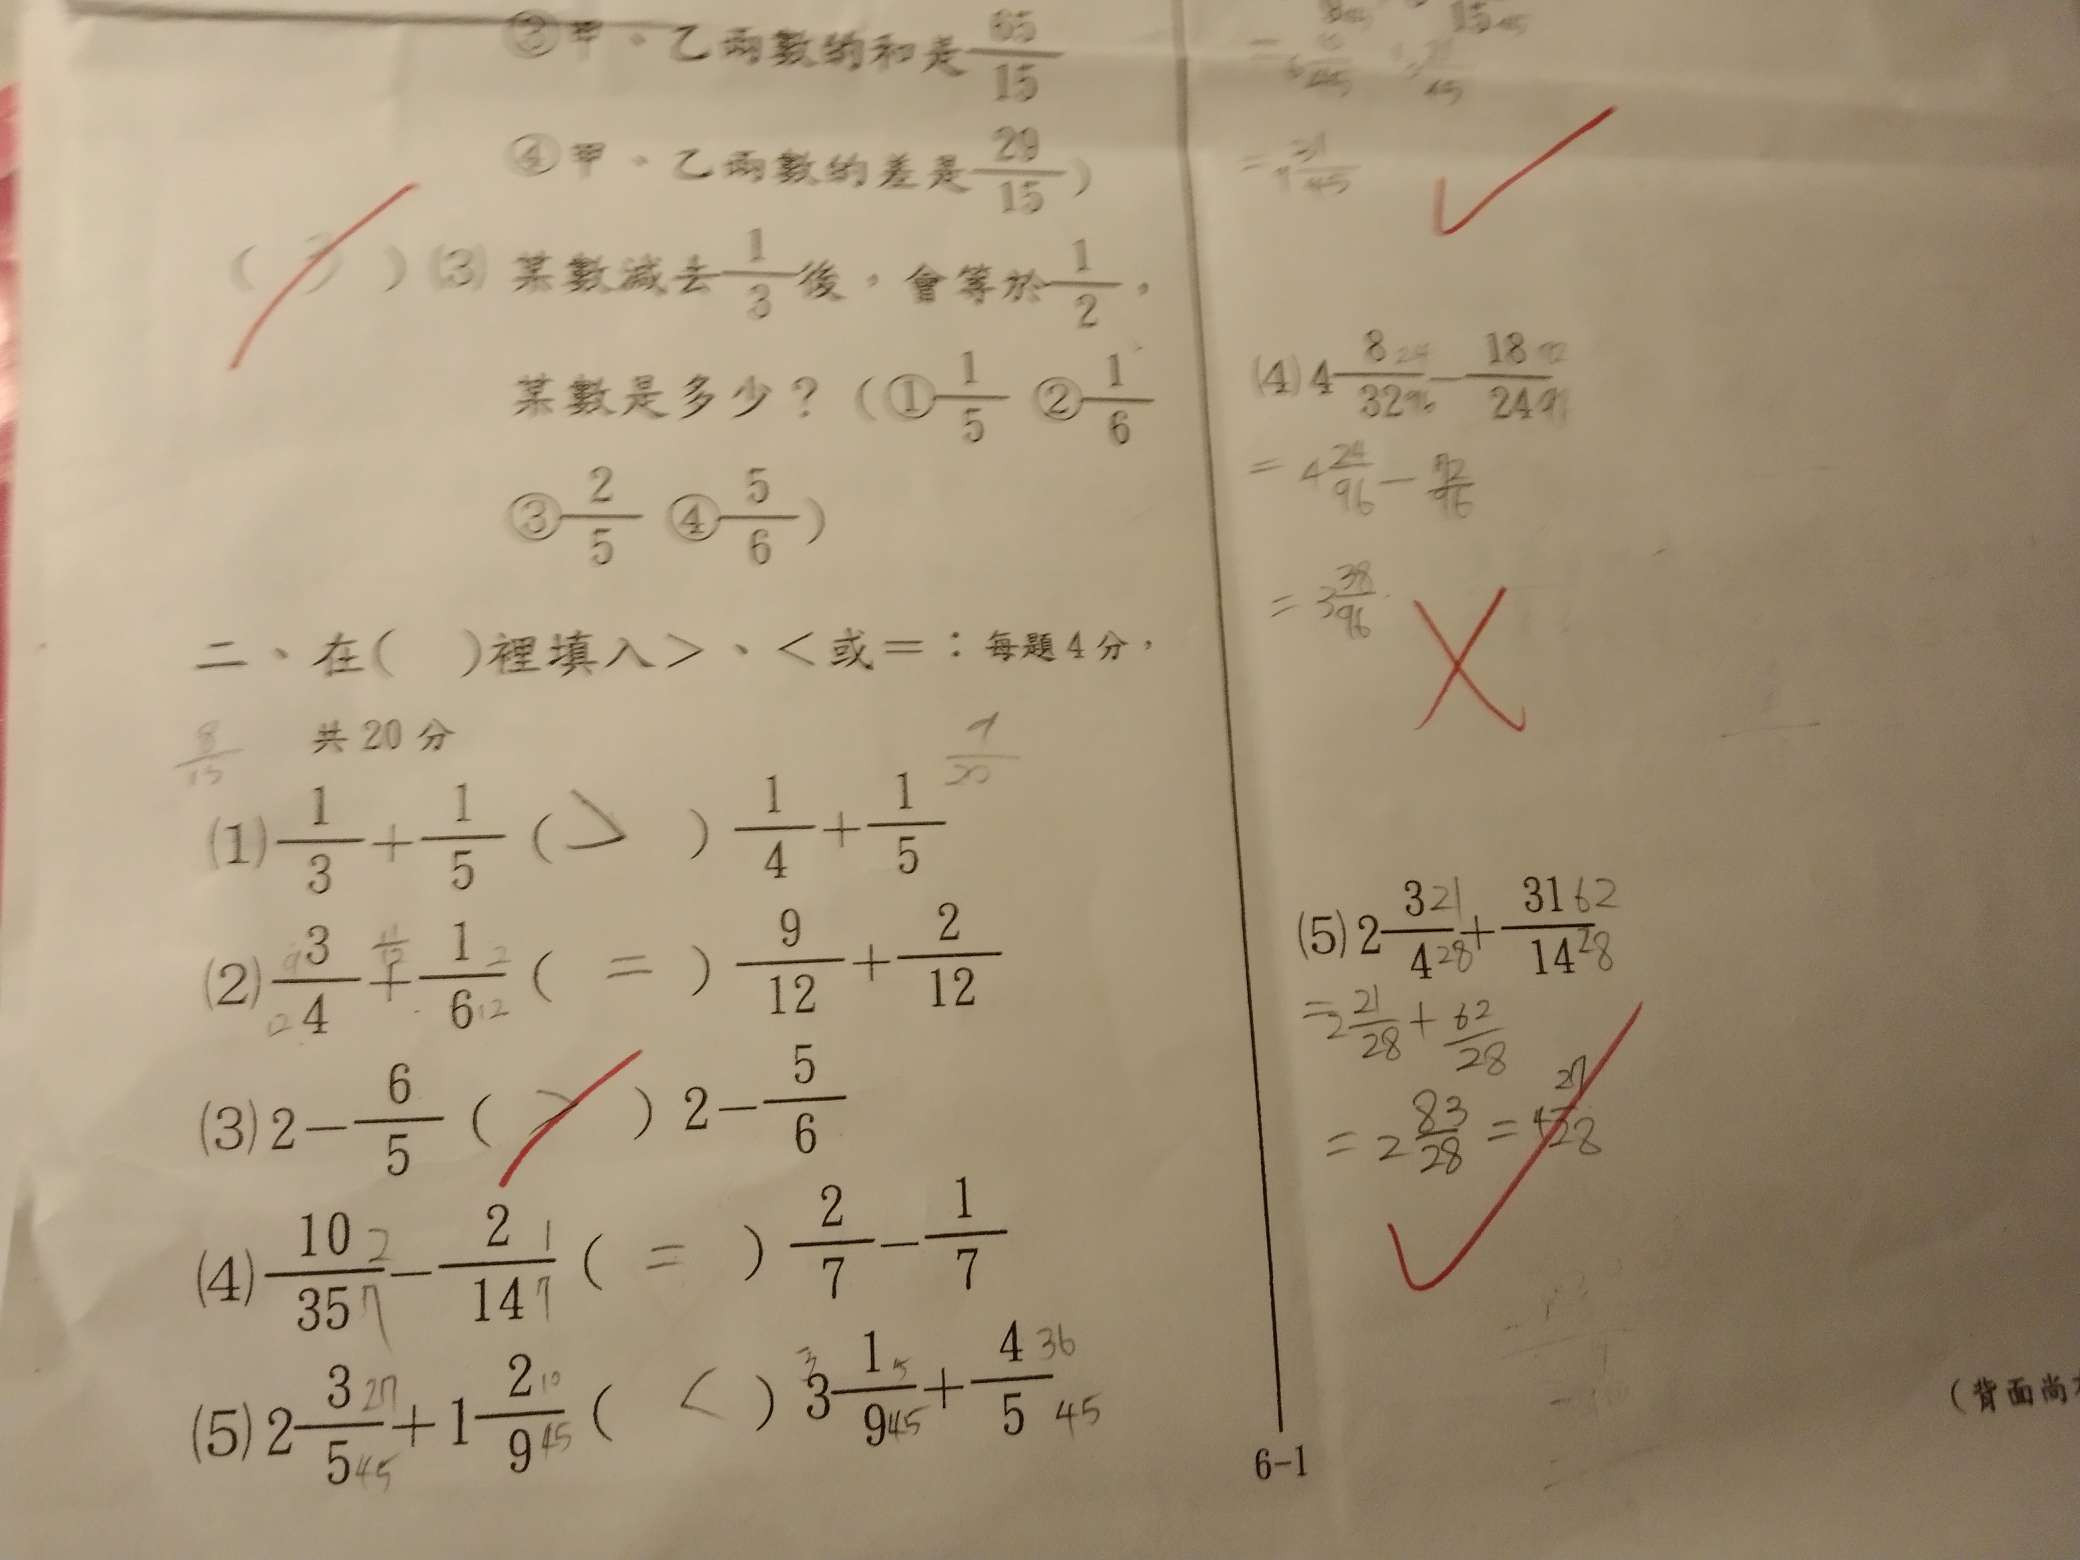 ③甲、乙兩數的和是65/15
④甲、乙兩數的差是29/15)
( ) (3) 某數減去1/3後,會等於1/2,
某數是多少?(①1/5 ②1/6
③2/5 ④5/6)
二、在( )裡填入>、<或=:每題4分,
共20分
8/15 9/20
(1) 1/3+1/5 ( > ) 1/4+1/5
(2) 3/4+1/6 ( = ) 9/12+2/12
11/12 9 12 2 12
(3) 2-6/5 ( > ) 2-5/6
(4) 10/35-2/14 ( = ) 2/7-1/7
2 7 1 7
(5) 2 3/5+1 2/9 ( < ) 3 1/9+4/5
27 45 10 45 5 45 36 45
= 9 31/45
(4) 4 8/32-18/24
24 96 72
= 4 24/96 - 72/96
= 3 38/96
(5) 2 3/4+31/14
21 28 62 28
= 2 21/28 + 62/28
= 2 83/28 = 4 27/28
6-1
(背面尚